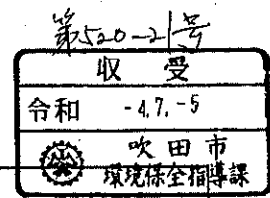 第520-21号
収受
令和 -4.7.-5
吹田市
環境保全指導課